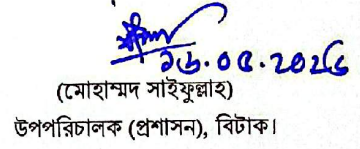 ১৬.০৫.২০২৬
(মোহাম্মদ সাইফুল্লাহ)
উপপরিচালক (প্রশাসন), বিটাক।